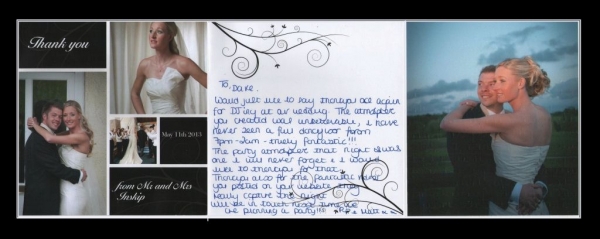 Thank you
May 11th 2013
from Mr and Mrs
Inskip
To Dave.
Would just like to say thankyou once again
for DJ'ing at our wedding. The atmosphere
you created was unbelievable, I have
never seen a full dancefloor from
7pm-2am - truely fantastic!!!
The party atmosphere that night was
one I will never forget & I would
like to thankyou for that.
Thankyou also for the fantastic
you posted on your website they
really capture the night
Will be in touch next time we
are planning a party!!!! & Matt xx